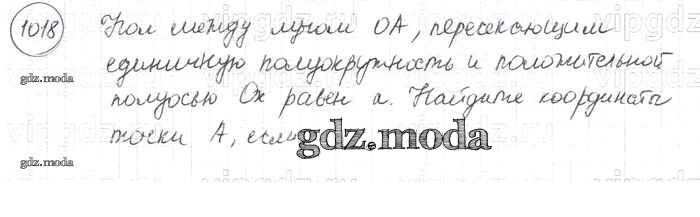 1018 Угол между лучом OA, пересекающим
единичную полуокружность и положительной
gdz.moda
полуосью Ox равен α. Найдите координаты
точки A, если
gdz.moda
gdz.moda